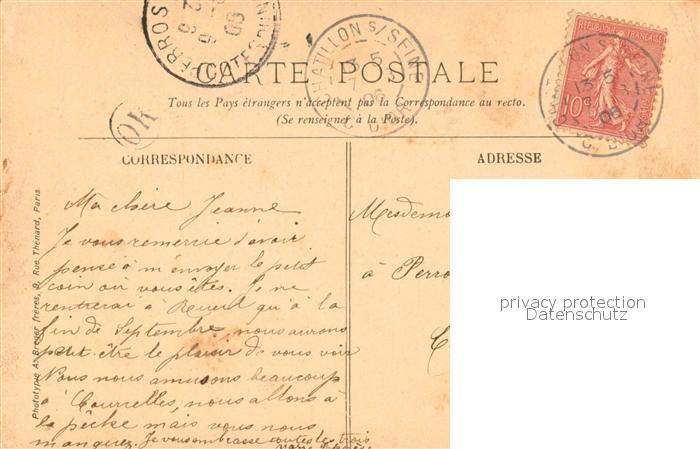 PERROS
COTES DU N
CHATILLON S/ SEINE
REPUBLIQUE FRANÇAISE
10c
CARTE POSTALE
Tous les Pays étrangers n'acceptent pas la Correspondance au recto.
(Se renseigner à la Poste).
OR
CORRESPONDANCE
ADRESSE
Ma chère Jeanne
Je vous remercie d'avoir
pensé à m'envoyer le petit
coin où vous êtes. Je ne
rentrerai à Rueil qu'à la
fin de Septembre, nous aurons
peut-être le plaisir de vous voir
Nous nous amusons beaucoup
à Courcelles, nous allons à
la pêche mais vous nous
manquez. Je vous embrasse toutes les trois
Mesdemo
à Perro
privacy protection
Datenschutz
Phototypie A. Breger frères, 9, Rue Thénard, Paris